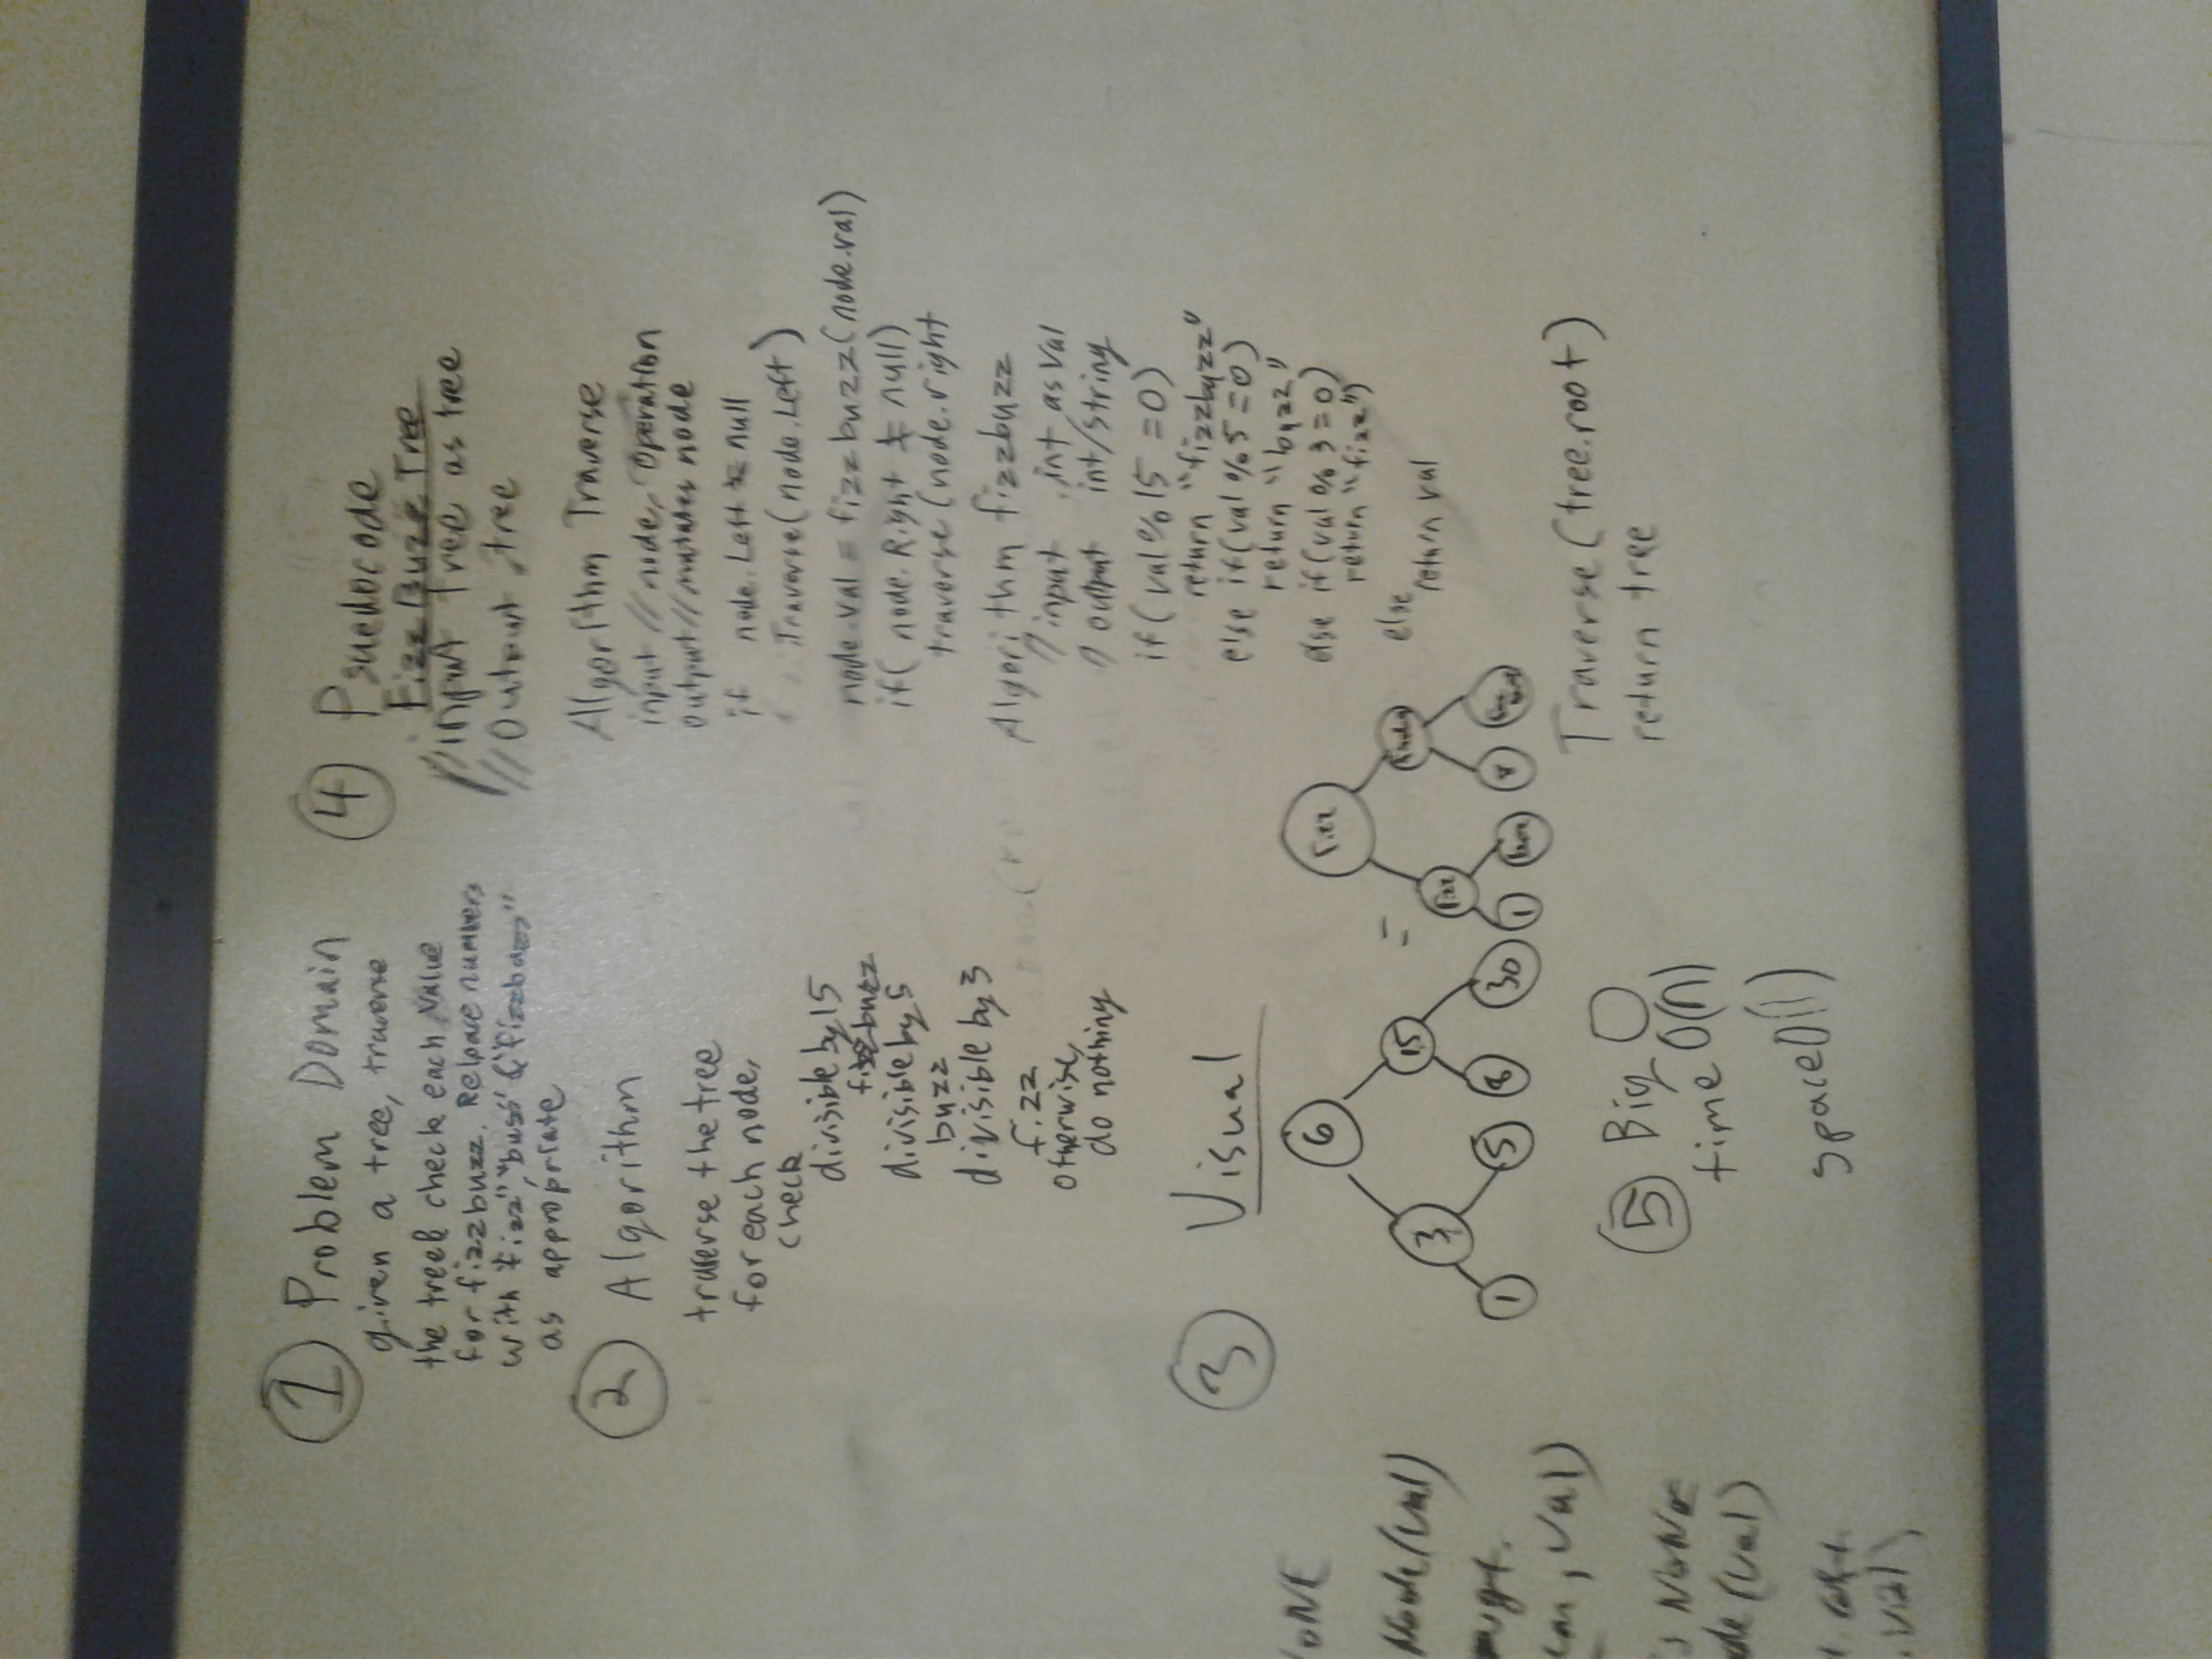 1 Problem Domain
given a tree, traverse
the tree & check each value
for fizzbuzz. Relpace numbers
with "fizz", "buzz" & "fizzbuzz"
as appropriate
2 Algorithm
traverse the tree
for each node,
check
divisible by 15
fizzbuzz
divisible by 5
buzz
divisible by 3
fizz
otherwise,
do nothing
3 Visual
6
3 15
1 5 8 30
=
fizz
fizz
1 buzz 8
5 Big O
time O(n)
space O(1)
4 Psuedocode
FizzBuzz Tree
// input Tree as tree
// Output tree
Algorithm Traverse
input // node, Operation
output // mutates node
if node.Left != null
Traverse(node.Left)
node.val = fizzbuzz(node.val)
if( node.Right != null)
traverse (node.right
Algorithm fizzbuzz
// input int as val
// output int/string
if( val % 15 = 0)
return "fizzbuzz"
else if(val % 5 = 0)
return "buzz"
else if(val % 3 = 0)
return "fizz")
else
return val
Traverse(tree.root)
return tree
Node(val)
, val)
(val)
.val),